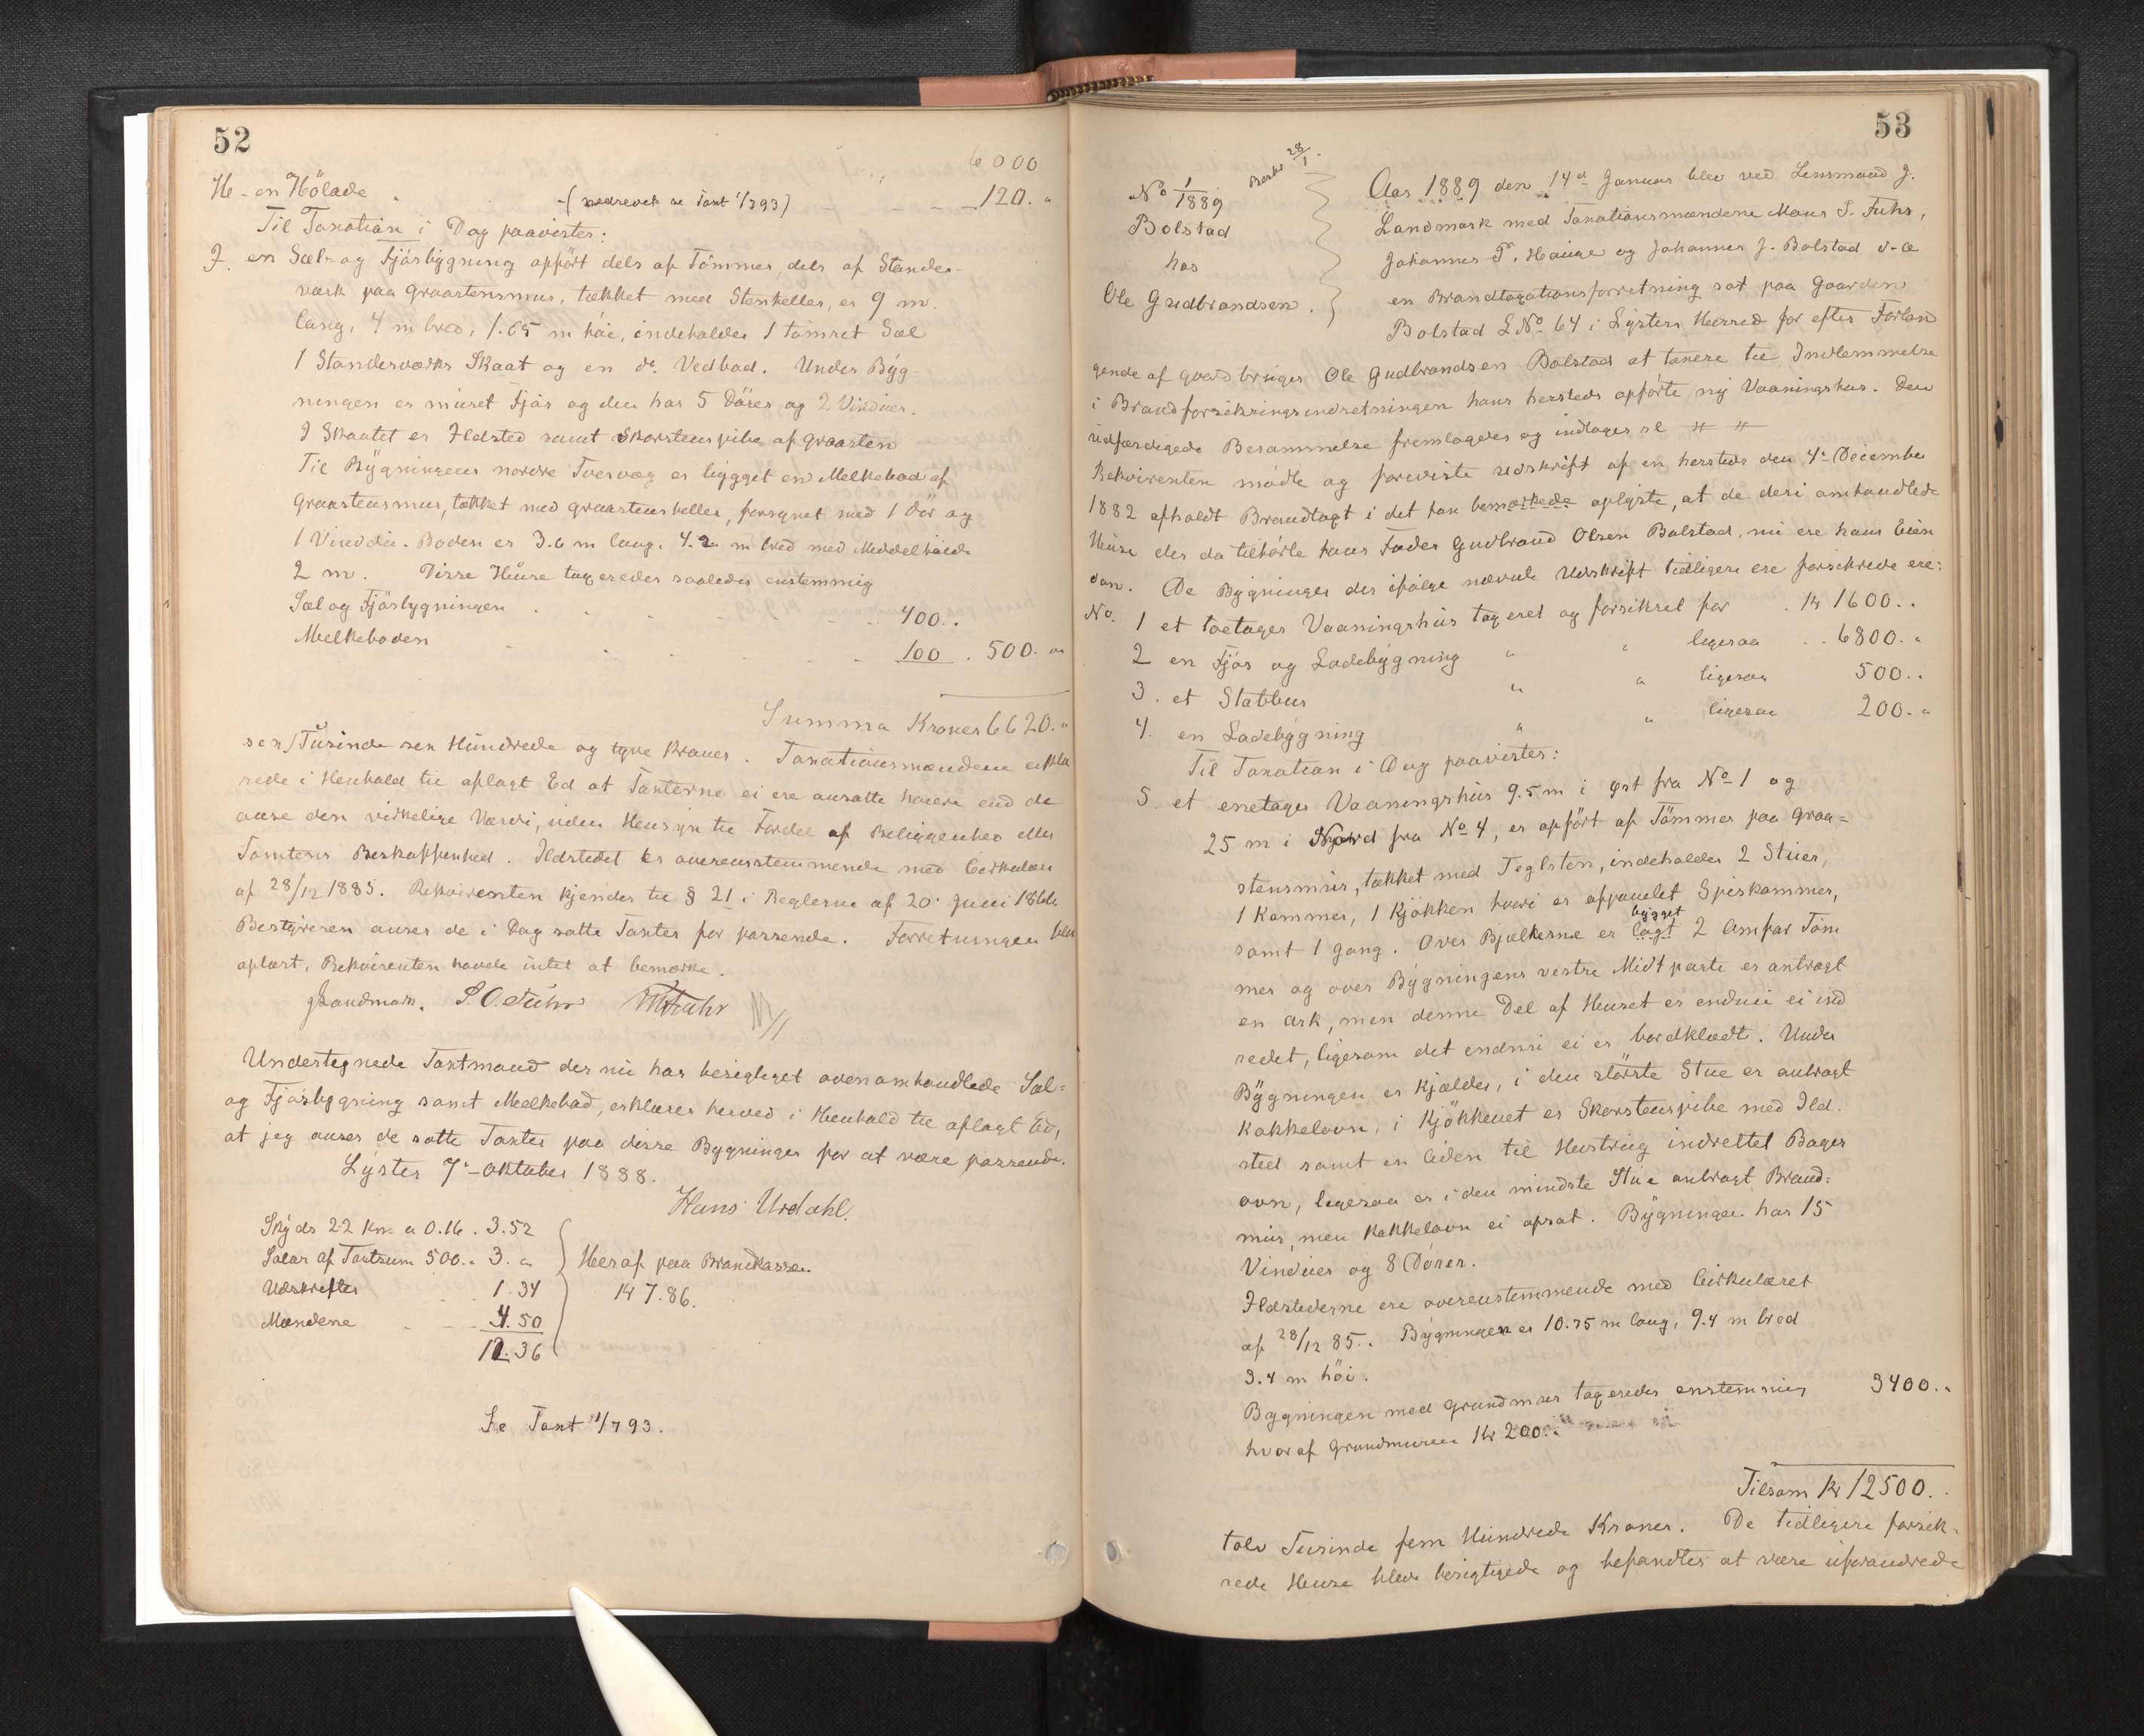 52
6000
H - en Hölade - (nedrevet se Taxt 1/7 93) - - 120. "
Til Taxation i Dag paavistes:
J. en Sæl- og Fjösbygning opfört dels af Tömmer, dels af Stender-
værk paa Graastensmur, tækket med Stenheller, er 9 m.
lang, 4 m bred, 1.65 m höi, indeholder 1 tömret Sæl
1 Standerværks Skaat og en do. Vedbod. Under Byg-
ningen er muret Fjös og den har 5 Dörer og 2 Vinduer.
I Skaatet er Ildsted samt Skorstenspibe af Graasten
Til Bygningens nordre Tvervæg er bygget en Melkebod af
Graastensmur, tækket med Graastensheller, forsynet med 1 Dör og
1 Vindue. Boden er 3.6 m lang, 4.2 m bred med Middelhöide
2 m. Disse Huse taxeredes saaledes enstemmig
Sæl og Fjösbygningen . . . 400. .
Melkeboden . . . 100 . 500. "
Summa Kroner 6620. "
sex/Tusinde sex Hundrede og tyve Kroner. Taxationsmændene erklæ
rede i Henhold til aflagt Ed at Taxterne ei ere ansatte höiere end de
anse den virkelige Værdi, uden Hensyn til Fordel af Beliggenhed eller
Tomtens Beskaffenhed. Ildstedet er overensstemmende med Cirkulære
af 28/12 1885. Rekvirenten kjender til § 21 i Reglerne af 20. Juni 1866.
Bestyreren anser de i Dag satte Taxter for passende. Forretningen blev
oplæst, Rekvirenten havde intet at bemærke.
J Landmark. S. O. Fuhr
Undertegnede Taxtmand der nu har besigtiget ovenomhandlede Sæl-
og Fjösbygning samt Melkebod, erklærer herved i Henhold til aflagt Ed,
at jeg anser de satte Taxter paa disse Bygninger for at være passende.
Lyster 7de oktober 1888.
Hans Urdahl.
Skyds 22 Km a 0.16 . 3.52
Salær af Taxtsum 500. . 3. "
Heraf paa Brandkassen
Udskrifter . . 1.34
Kr 7.86.
Mændene . . 4.50
12.36
Se Taxt 1/7 93.
53
28/1
No 1/1889
Bolstad
hos
Ole Gudbrandsen.
Aar 1889 den 14de Januar blev ved Lensmand J.
Landmark med Taxationsmændene Mons S. Fuhr,
Johannes P. Hauge og Johannes J. Bolstad
en Brandtaxationsforretning sat paa Gaarden
Bolstad L No 64 i Lysters Herred for efter Forlan
gende af Gaardbruger Ole Gudbrandsen Bolstad at taxere til Indlemmelse
i Brandforsikringsindretningen hans hersteds opförte ny Vaaningshus. Den
udfærdigede Berammelse fremlagdes og indtages
Rekvirenten mödte og foreviste Udskrift af en hersteds den 4de December
1882 afholdt Brandtaxt i det han bemærkede oplyste, at de deri omhandlede
Huse der da tilhörte hans Fader Gudbrand Olsen Bolstad, nu ere hans Eien
dom. De Bygninger der ifölge nævnte Udskrift tidligere ere forsikrede ere:
No. 1 et toetages Vaaningshus taxeret og forsikret for . Kr 1600. .
2 en Fjös og Ladebygning " " ligesaa . . 6800. "
3. et Stabbur " " ligesaa 500. .
4. en Ladebygning " " ligesaa 200. "
Til Taxation i Dag paavistes:
5. et enetages Vaaningshus 9.5 m i öst fra No 1 og
25 m i Nord fra No 4, er opfört af Tömmer paa Graa=
stensmur, tækket med Teglsten, indeholder 2 Stuer,
1 Kammer, 1 Kjökken hvori er afpanelet Spiskammer,
bygget
samt 1 Gang. Over Bjelkerne er lagt 2 Omfar Töm
mer og over Bygningens vestre Midtparte er anbragt
en Ark, men denne Del af Huset er endnu ei ind
redet, ligesom det endnu ei er bordklædt. Under
Bygningen er Kjælder, i den störste Stue er anbragt
Kakkelovn, i Kjökkenet er Skorstenspibe med Ild.
sted samt en liden til Hustrug indrettet Bager
ovn, ligesaa er i den mindste Stue anbragt Brand=
mur, men Kakkelovn ei opsat. Bygningen har 15
Vinduer og 8 Dörer.
Ildstederne ere overenstemmende med Cirkulæret
af 28/12 85. . Bygningen er 10.75 m lang, 9.4 m bred
3.4 m höi.
Bygningen med Grundmur taxeredes enstemmig 3400. .
hvoraf Grundmuren Kr 200. .
Tilsam Kr 12500. .
tolv Tusinde fem Hundrede Kroner. De tidligere forsik-
rede Huse blev besigtigede og befandtes at være uforandrede